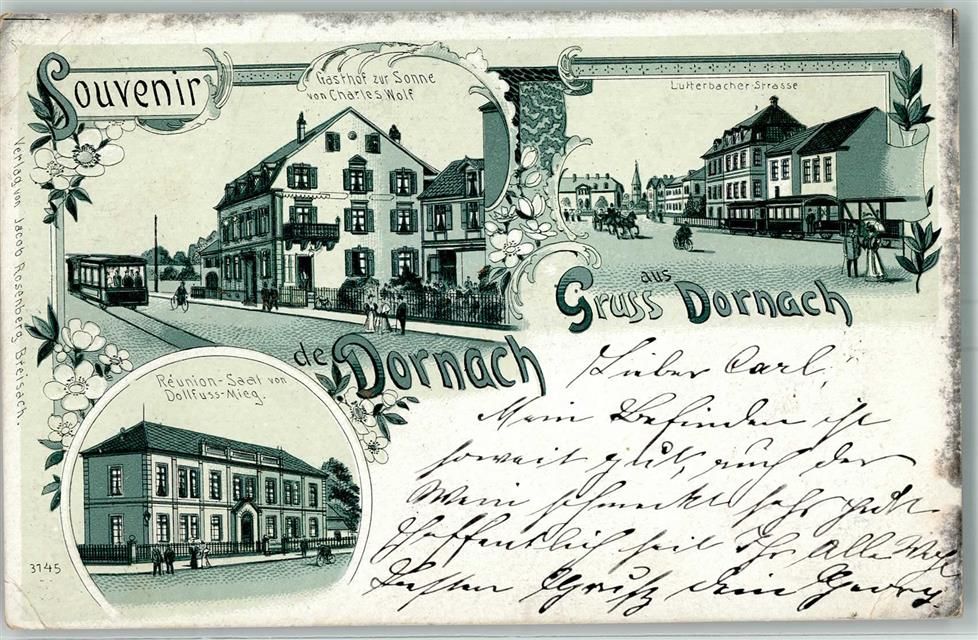 Souvenir
Gasthof zur Sonne
von Charles Wolf
Lutterbacher-Strasse
aus
Gruss Dornach
de Dornach
Réunion-Saal von
Dollfuss-Mieg.
Verlag von Jacob Rosenberg, Breisach.
3145
Lieber Carl,
Mein Befinden ist
soweit gut, auch der
Wein schmeckt sehr gut
Hoffentlich seit Ihr Alle Wohl
Besten Gruß Dein Georg.